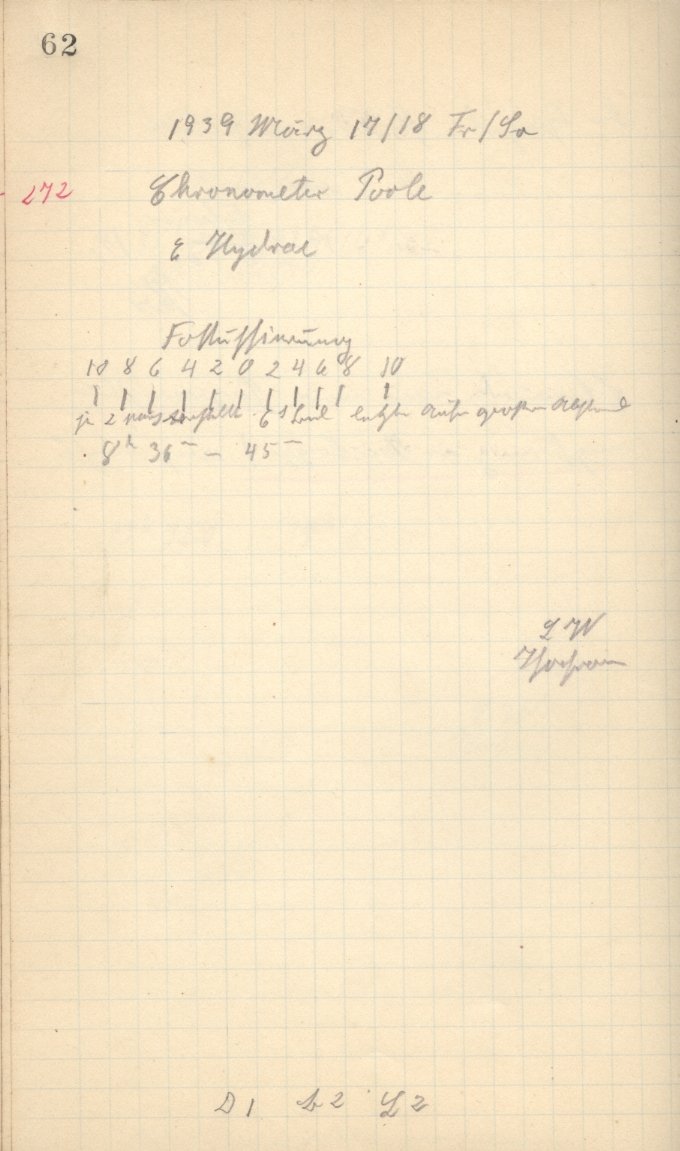 62
1939 März 17/18 Fr/Sa
272
Chronometer Poole
ε Hydrae
Fokussierung
10 8 6 4 2 0 2 4 6 8 10
je 2 letzte großen Abstand
8h 36m – 45m
L W
D1 L2